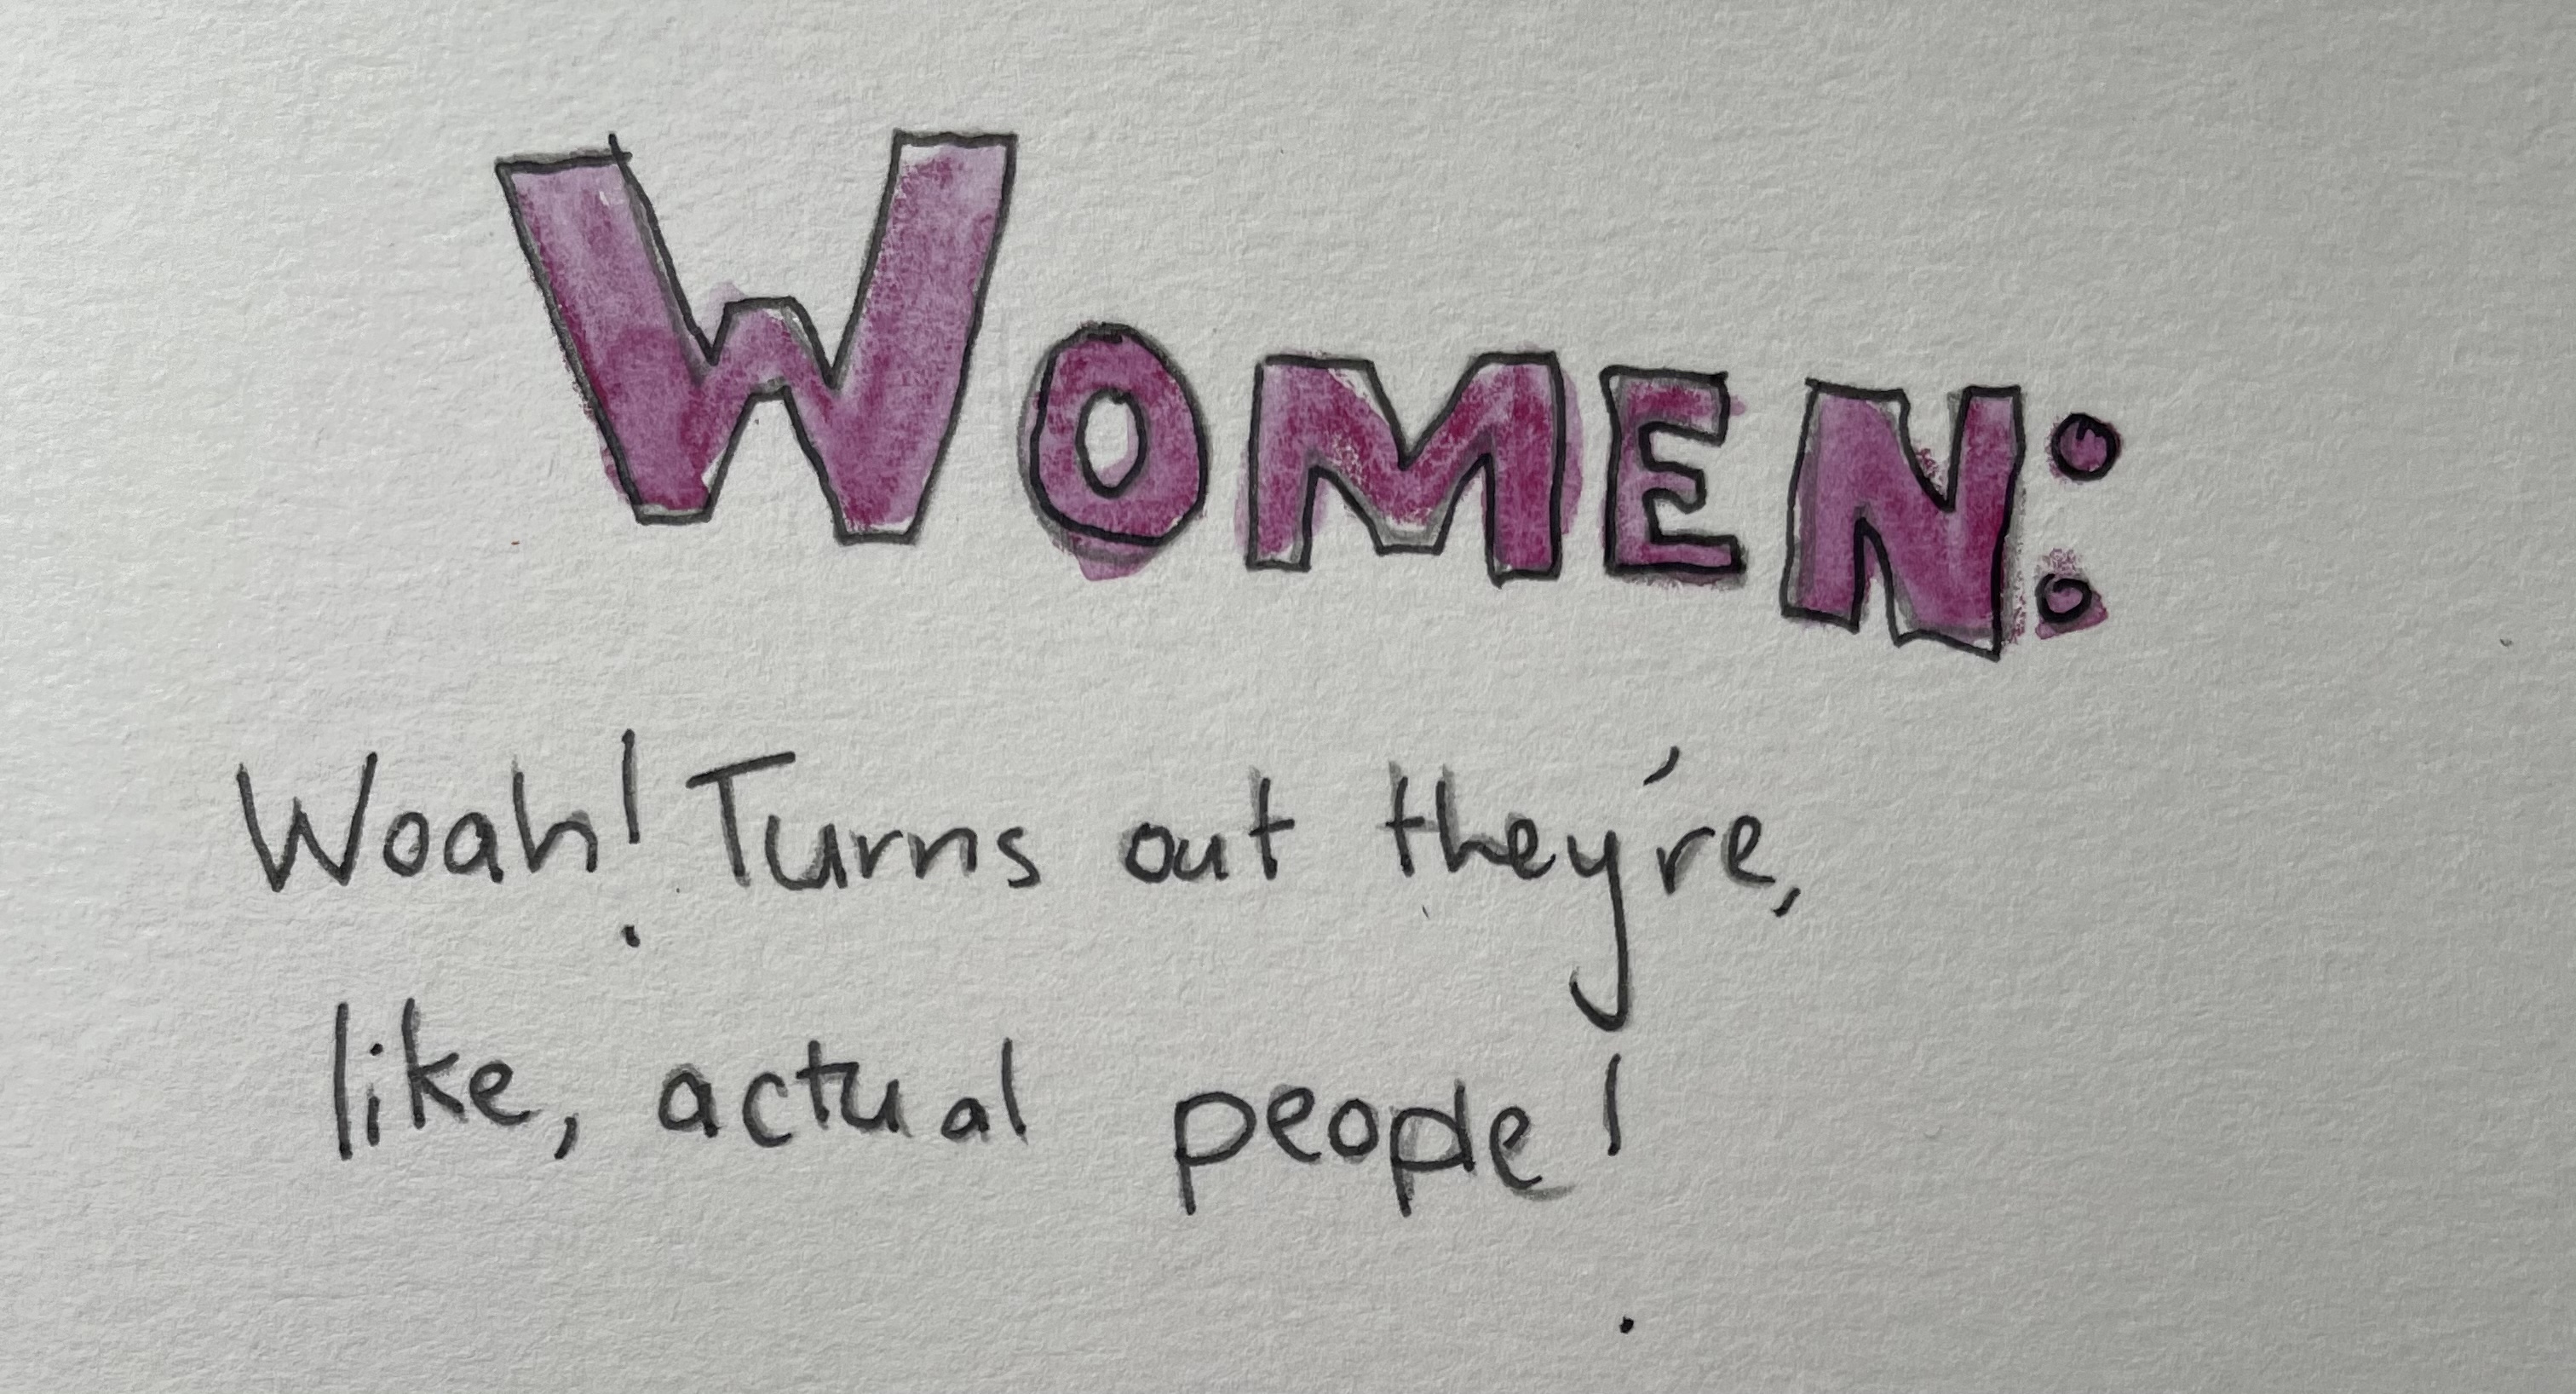 WOMEN:
Woah! Turns out they're,
like, actual people!